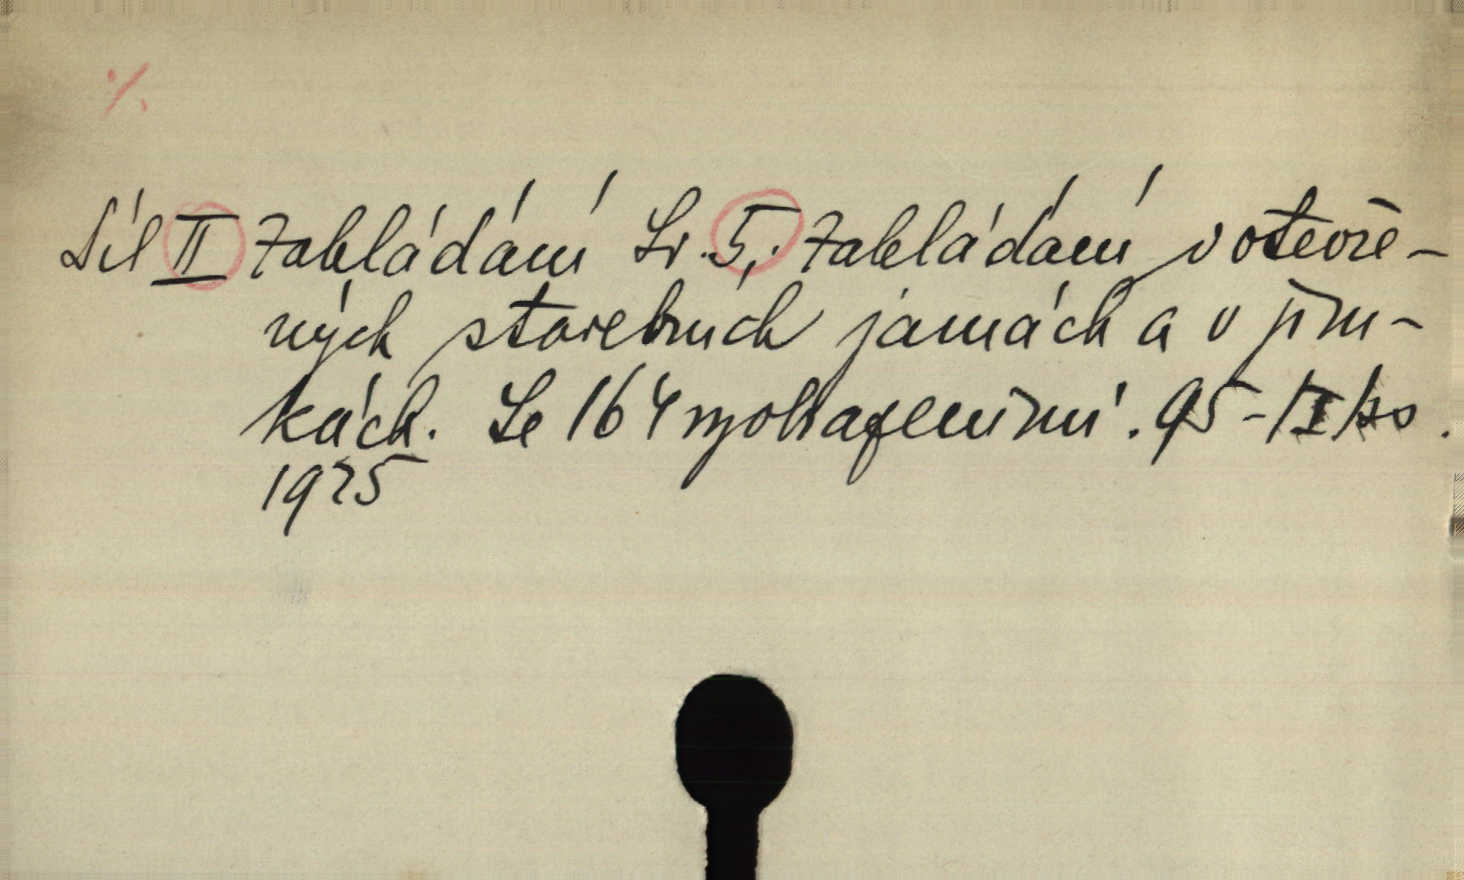 ./.
Díl II Zakládání Sv. 5,: Zakládání v otevře-
ných stavebních jamách a v jím-
kách. Se 164 vyobrazeními. 95-/I/
1925